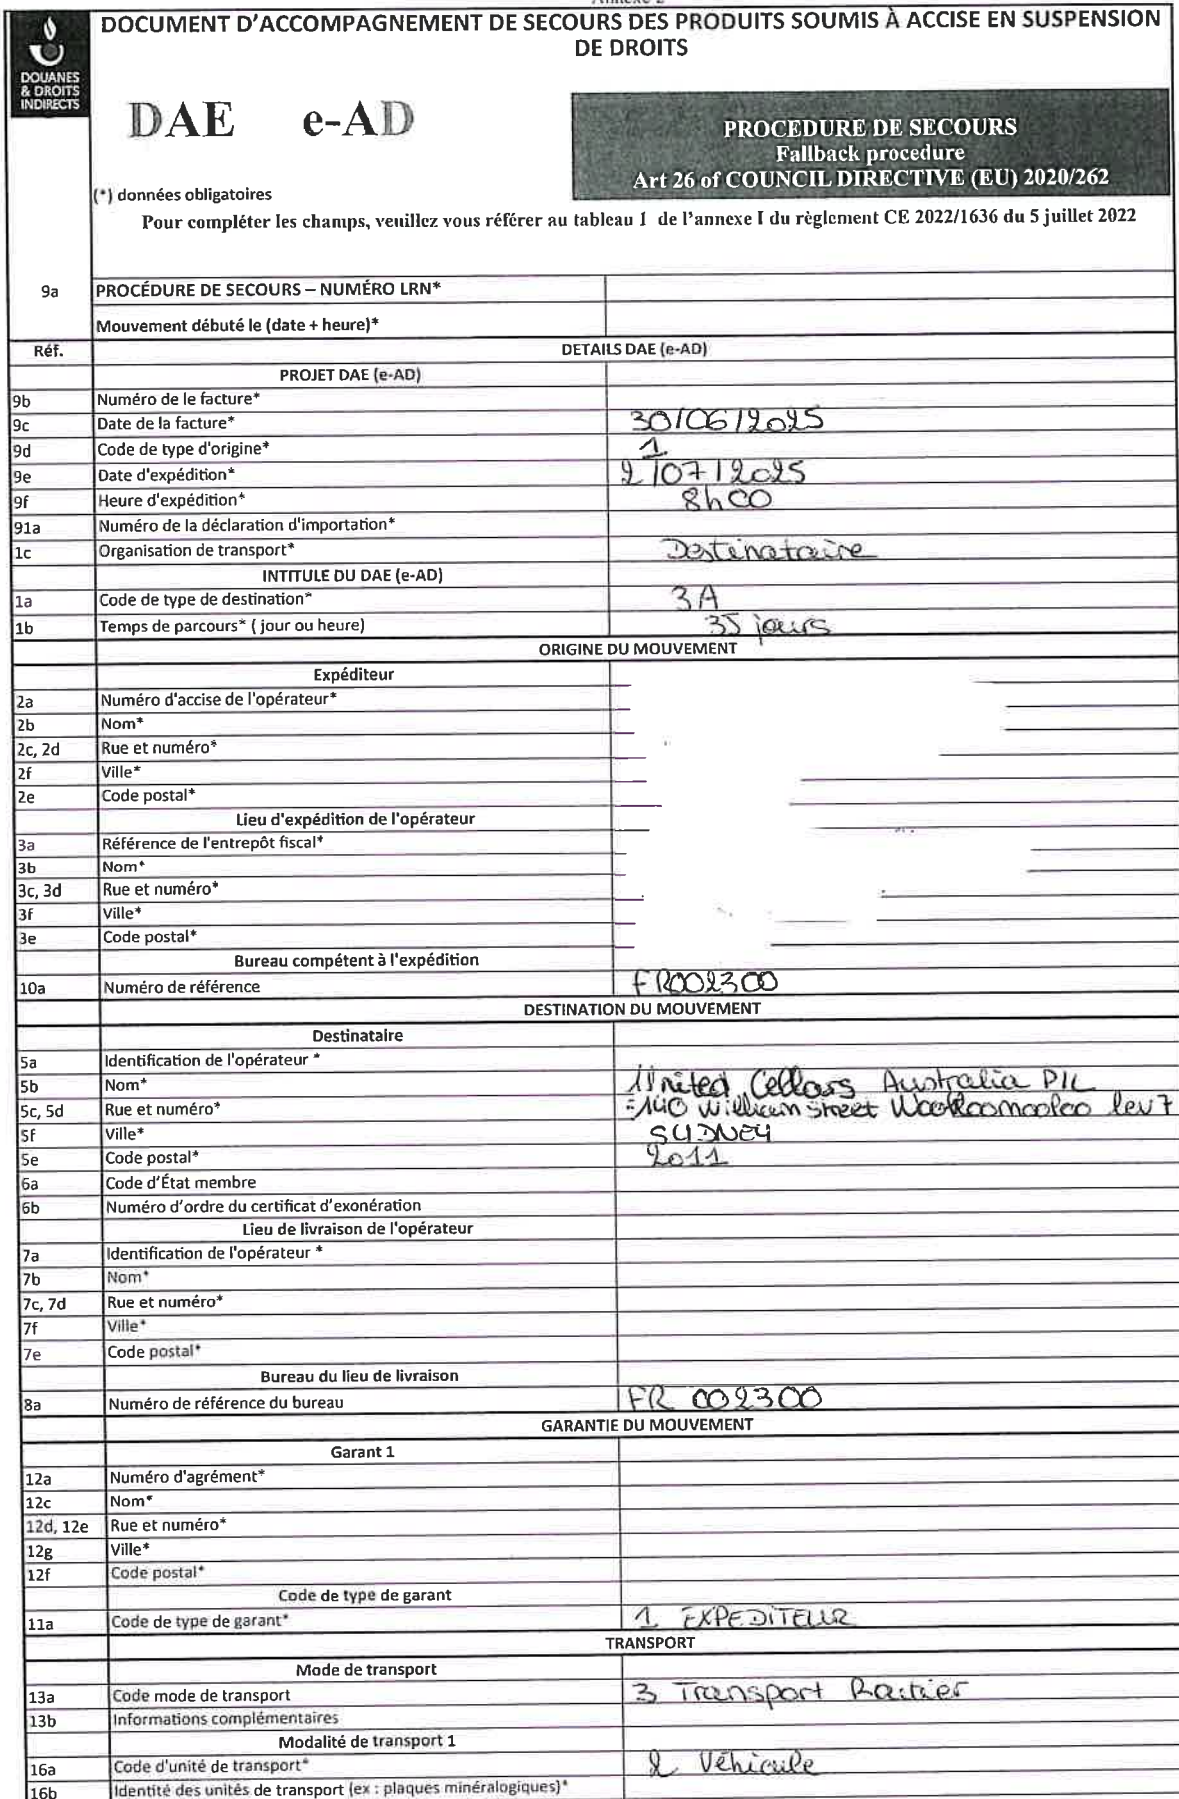 DOCUMENT D'ACCOMPAGNEMENT DE SECOURS DES PRODUITS SOUMIS À ACCISE EN SUSPENSION
DE DROITS
DOUANES
& DROITS
INDIRECTS
DAE e-AD
PROCEDURE DE SECOURS
Fallback procedure
Art 26 of COUNCIL DIRECTIVE (EU) 2020/262
(*) données obligatoires
Pour compléter les champs, veuillez vous référer au tableau 1 de l'annexe I du règlement CE 2022/1636 du 5 juillet 2022
9a PROCÉDURE DE SECOURS – NUMÉRO LRN*
Mouvement débuté le (date + heure)*
Réf. DETAILS DAE (e-AD)
PROJET DAE (e-AD)
9b Numéro de le facture*
9c Date de la facture* 30/06/2025
9d Code de type d'origine* 1
9e Date d'expédition* 2/07/2025
9f Heure d'expédition* 8h00
91a Numéro de la déclaration d'importation*
1c Organisation de transport* Destinataire
INTITULE DU DAE (e-AD)
1a Code de type de destination* 3A
1b Temps de parcours* ( jour ou heure) 35 jours
ORIGINE DU MOUVEMENT
Expéditeur
2a Numéro d'accise de l'opérateur*
2b Nom*
2c, 2d Rue et numéro*
2f Ville*
2e Code postal*
Lieu d'expédition de l'opérateur
3a Référence de l'entrepôt fiscal*
3b Nom*
3c, 3d Rue et numéro*
3f Ville*
3e Code postal*
Bureau compétent à l'expédition
10a Numéro de référence FR002300
DESTINATION DU MOUVEMENT
Destinataire
5a Identification de l'opérateur *
5b Nom* United Cellars Australia P/L
5c, 5d Rue et numéro* 140 William Street Woolloomooloo lev 7
5f Ville* SYDNEY
5e Code postal* 2011
6a Code d'État membre
6b Numéro d'ordre du certificat d'exonération
Lieu de livraison de l'opérateur
7a Identification de l'opérateur *
7b Nom*
7c, 7d Rue et numéro*
7f Ville*
7e Code postal*
Bureau du lieu de livraison
8a Numéro de référence du bureau FR 002300
GARANTIE DU MOUVEMENT
Garant 1
12a Numéro d'agrément*
12c Nom*
12d, 12e Rue et numéro*
12g Ville*
12f Code postal*
Code de type de garant
11a Code de type de garant* 1 EXPEDITEUR
TRANSPORT
Mode de transport
13a Code mode de transport 3 Transport Routier
13b Informations complémentaires
Modalité de transport 1
16a Code d'unité de transport* 2 Véhicule
16b Identité des unités de transport (ex : plaques minéralogiques)*